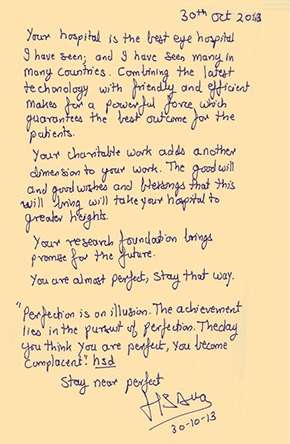 30th Oct 2013
Your hospital is the best eye hospital
I have seen, and I have seen many in
many Countries. Combining the latest
technology with friendly and efficient
makes for a powerful force, which
guarantees the best outcome for the
patients.
Your charitable work adds another
dimension to your work. The goodwill
and good wishes and blessings that this
will bring will take your hospital to
greater heights.
Your research foundation brings
promise for the future.
You are almost perfect, Stay that way.
"Perfection is an illusion. The achievement
lies in the pursuit of perfection. The day
you think you are perfect, You become
Complacent". hsd
Stay near perfect
30-10-13